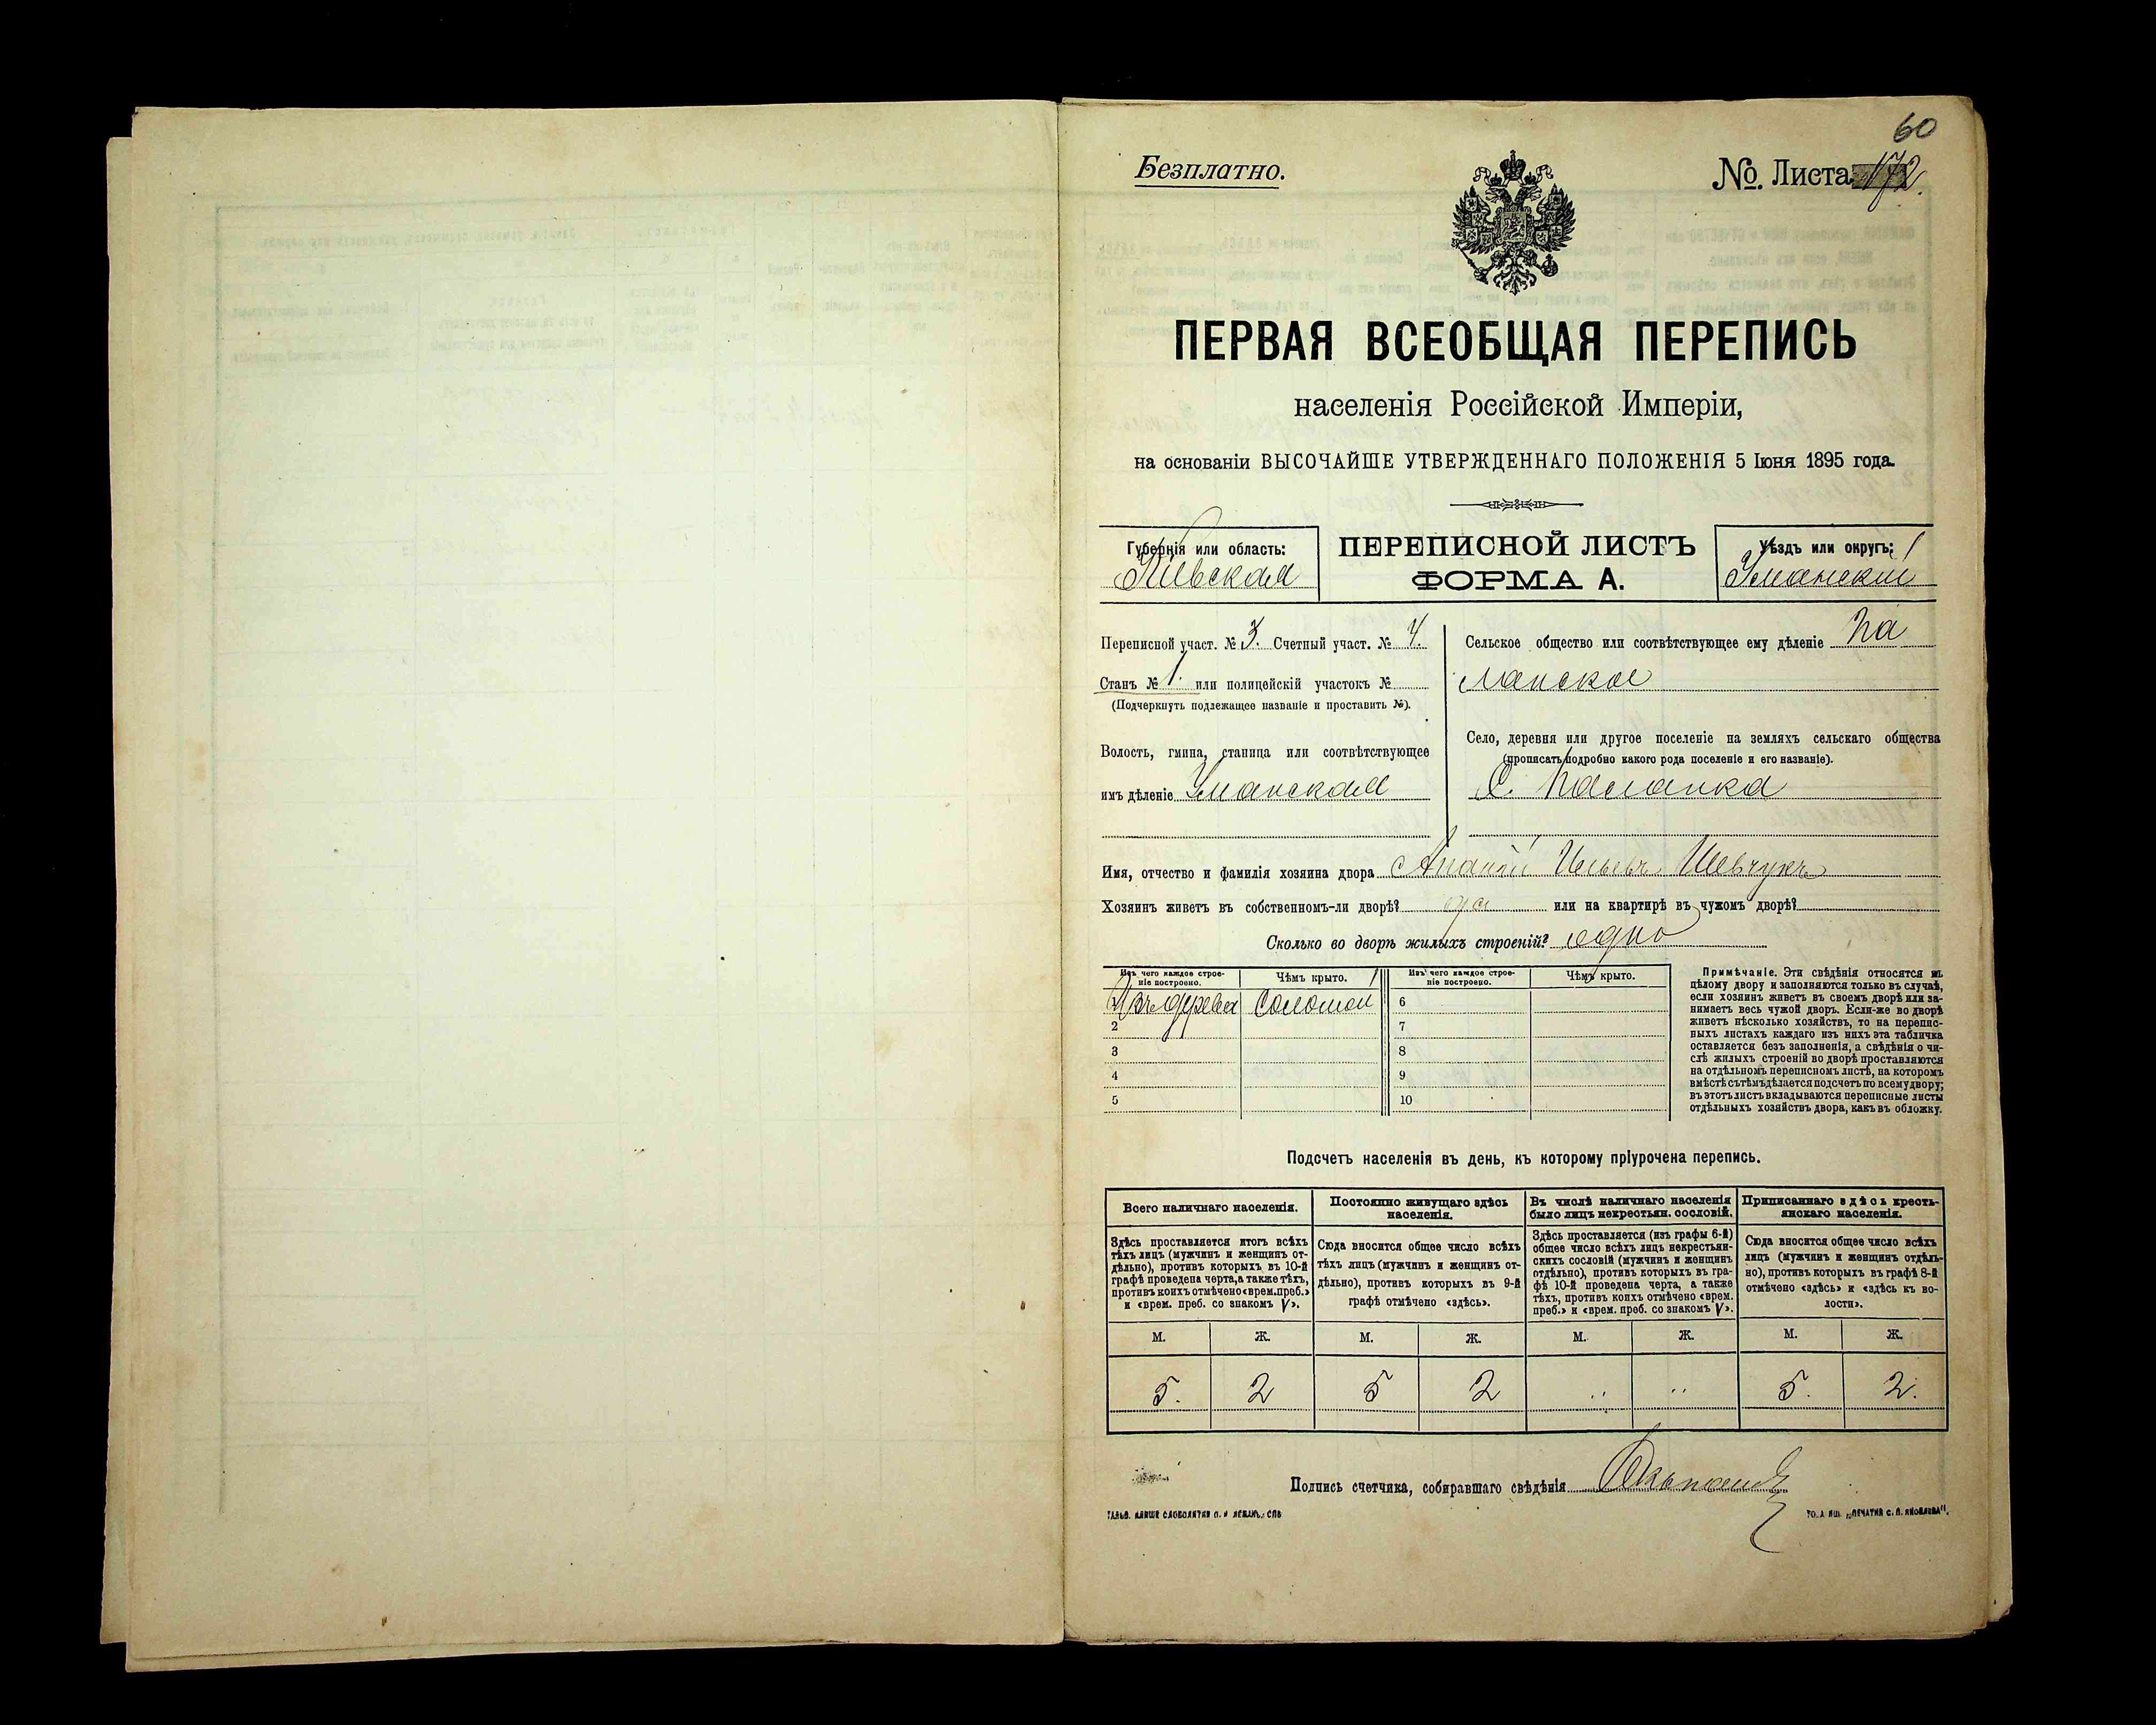 60
Безплатно.
№. Листа 172.
ПЕРВАЯ ВСЕОБЩАЯ ПЕРЕПИСЬ
населенія Россійской Имперіи,
на основаніи ВЫСОЧАЙШЕ УТВЕРЖДЕННАГО ПОЛОЖЕНІЯ 5 Іюня 1895 года.
Губернія или область:
Кіевская
ПЕРЕПИСНОЙ ЛИСТЪ
ФОРМА А.
Уѣздъ или округъ:
Уманскій
Переписной участ. № 3. Счетный участ. № 4.
Станъ № 1. или полицейскій участокъ №
(Подчеркнуть подлежащее названіе и проставить №).
Волость, гмина, станица или соотвѣтствующее
имъ дѣленіе Уманская
Сельское общество или соотвѣтствующее ему дѣленіе Па
ланское
Село, деревня или другое поселеніе на земляхъ сельскаго общества
(прописать подробно какого рода поселеніе и его названіе).
С. Паланка
Имя, отчество и фамилія хозяина двора Ананій Ильевъ Шевчукъ
Хозяинъ живетъ въ собственномъ-ли дворѣ? да или на квартирѣ въ чужомъ дворѣ?
Сколько во дворѣ жилыхъ строеній? одно
Изъ чего каждое строе-
ніе построено.
Чѣмъ крыто.
Изъ чего каждое строе-
ніе построено.
Чѣмъ крыто.
Изъ дерева Соломой 6
2 7
3 8
4 9
5 10
Примѣчаніе. Эти свѣдѣнія относятся къ
цѣлому двору и заполняются только въ случаѣ,
если хозяинъ живетъ въ своемъ дворѣ или за-
нимаетъ весь чужой дворъ. Если-же во дворѣ
живетъ нѣсколько хозяйствъ, то на перепис-
ныхъ листахъ каждаго изъ нихъ эта табличка
оставляется безъ заполненія, а свѣдѣнія о чи-
слѣ жилыхъ строеній во дворѣ проставляются
на отдѣльномъ переписномъ листѣ, на которомъ
вмѣстѣ съ тѣмъ дѣлается подсчетъ по всему двору;
въ этотъ листъ вкладываются переписные листы
отдѣльныхъ хозяйствъ двора, какъ въ обложку.
Подсчетъ населенія въ день, къ которому пріурочена перепись.
Всего наличнаго населенія.
Здѣсь проставляется итогъ всѣхъ
тѣхъ лицъ (мужчинъ и женщинъ от-
дѣльно), противъ которыхъ въ 10-й
графѣ проведена черта, а также тѣхъ,
противъ коихъ отмѣчено «врем. преб.»
и «врем. преб. со знакомъ V».
Постоянно живущаго здѣсь
населенія.
Сюда вносится общее число всѣхъ
тѣхъ лицъ (мужчинъ и женщинъ от-
дѣльно), противъ которыхъ въ 9-й
графѣ отмѣчено «здѣсь».
Въ числѣ наличнаго населенія
было лицъ некрестьян. сословій.
Здѣсь проставляется (изъ графы 6-й)
общее число всѣхъ лицъ некрестьян-
скихъ сословій (мужчинъ и женщинъ
отдѣльно), противъ которыхъ въ гра-
фѣ 10-й проведена черта, а также
тѣхъ, противъ коихъ отмѣчено «врем.
преб.» и «врем. преб. со знакомъ V».
Приписаннаго здѣсь кресть-
янскаго населенія.
Сюда вносится общее число всѣхъ
лицъ (мужчинъ и женщинъ отдѣль-
но), противъ которыхъ въ графѣ 8-й
отмѣчено «здѣсь» и «здѣсь къ во-
лости».
М. Ж. М. Ж. М. Ж. М. Ж.
5. 2 5 2 " " 5. 2.
Подпись счетчика, собиравшаго свѣдѣнія